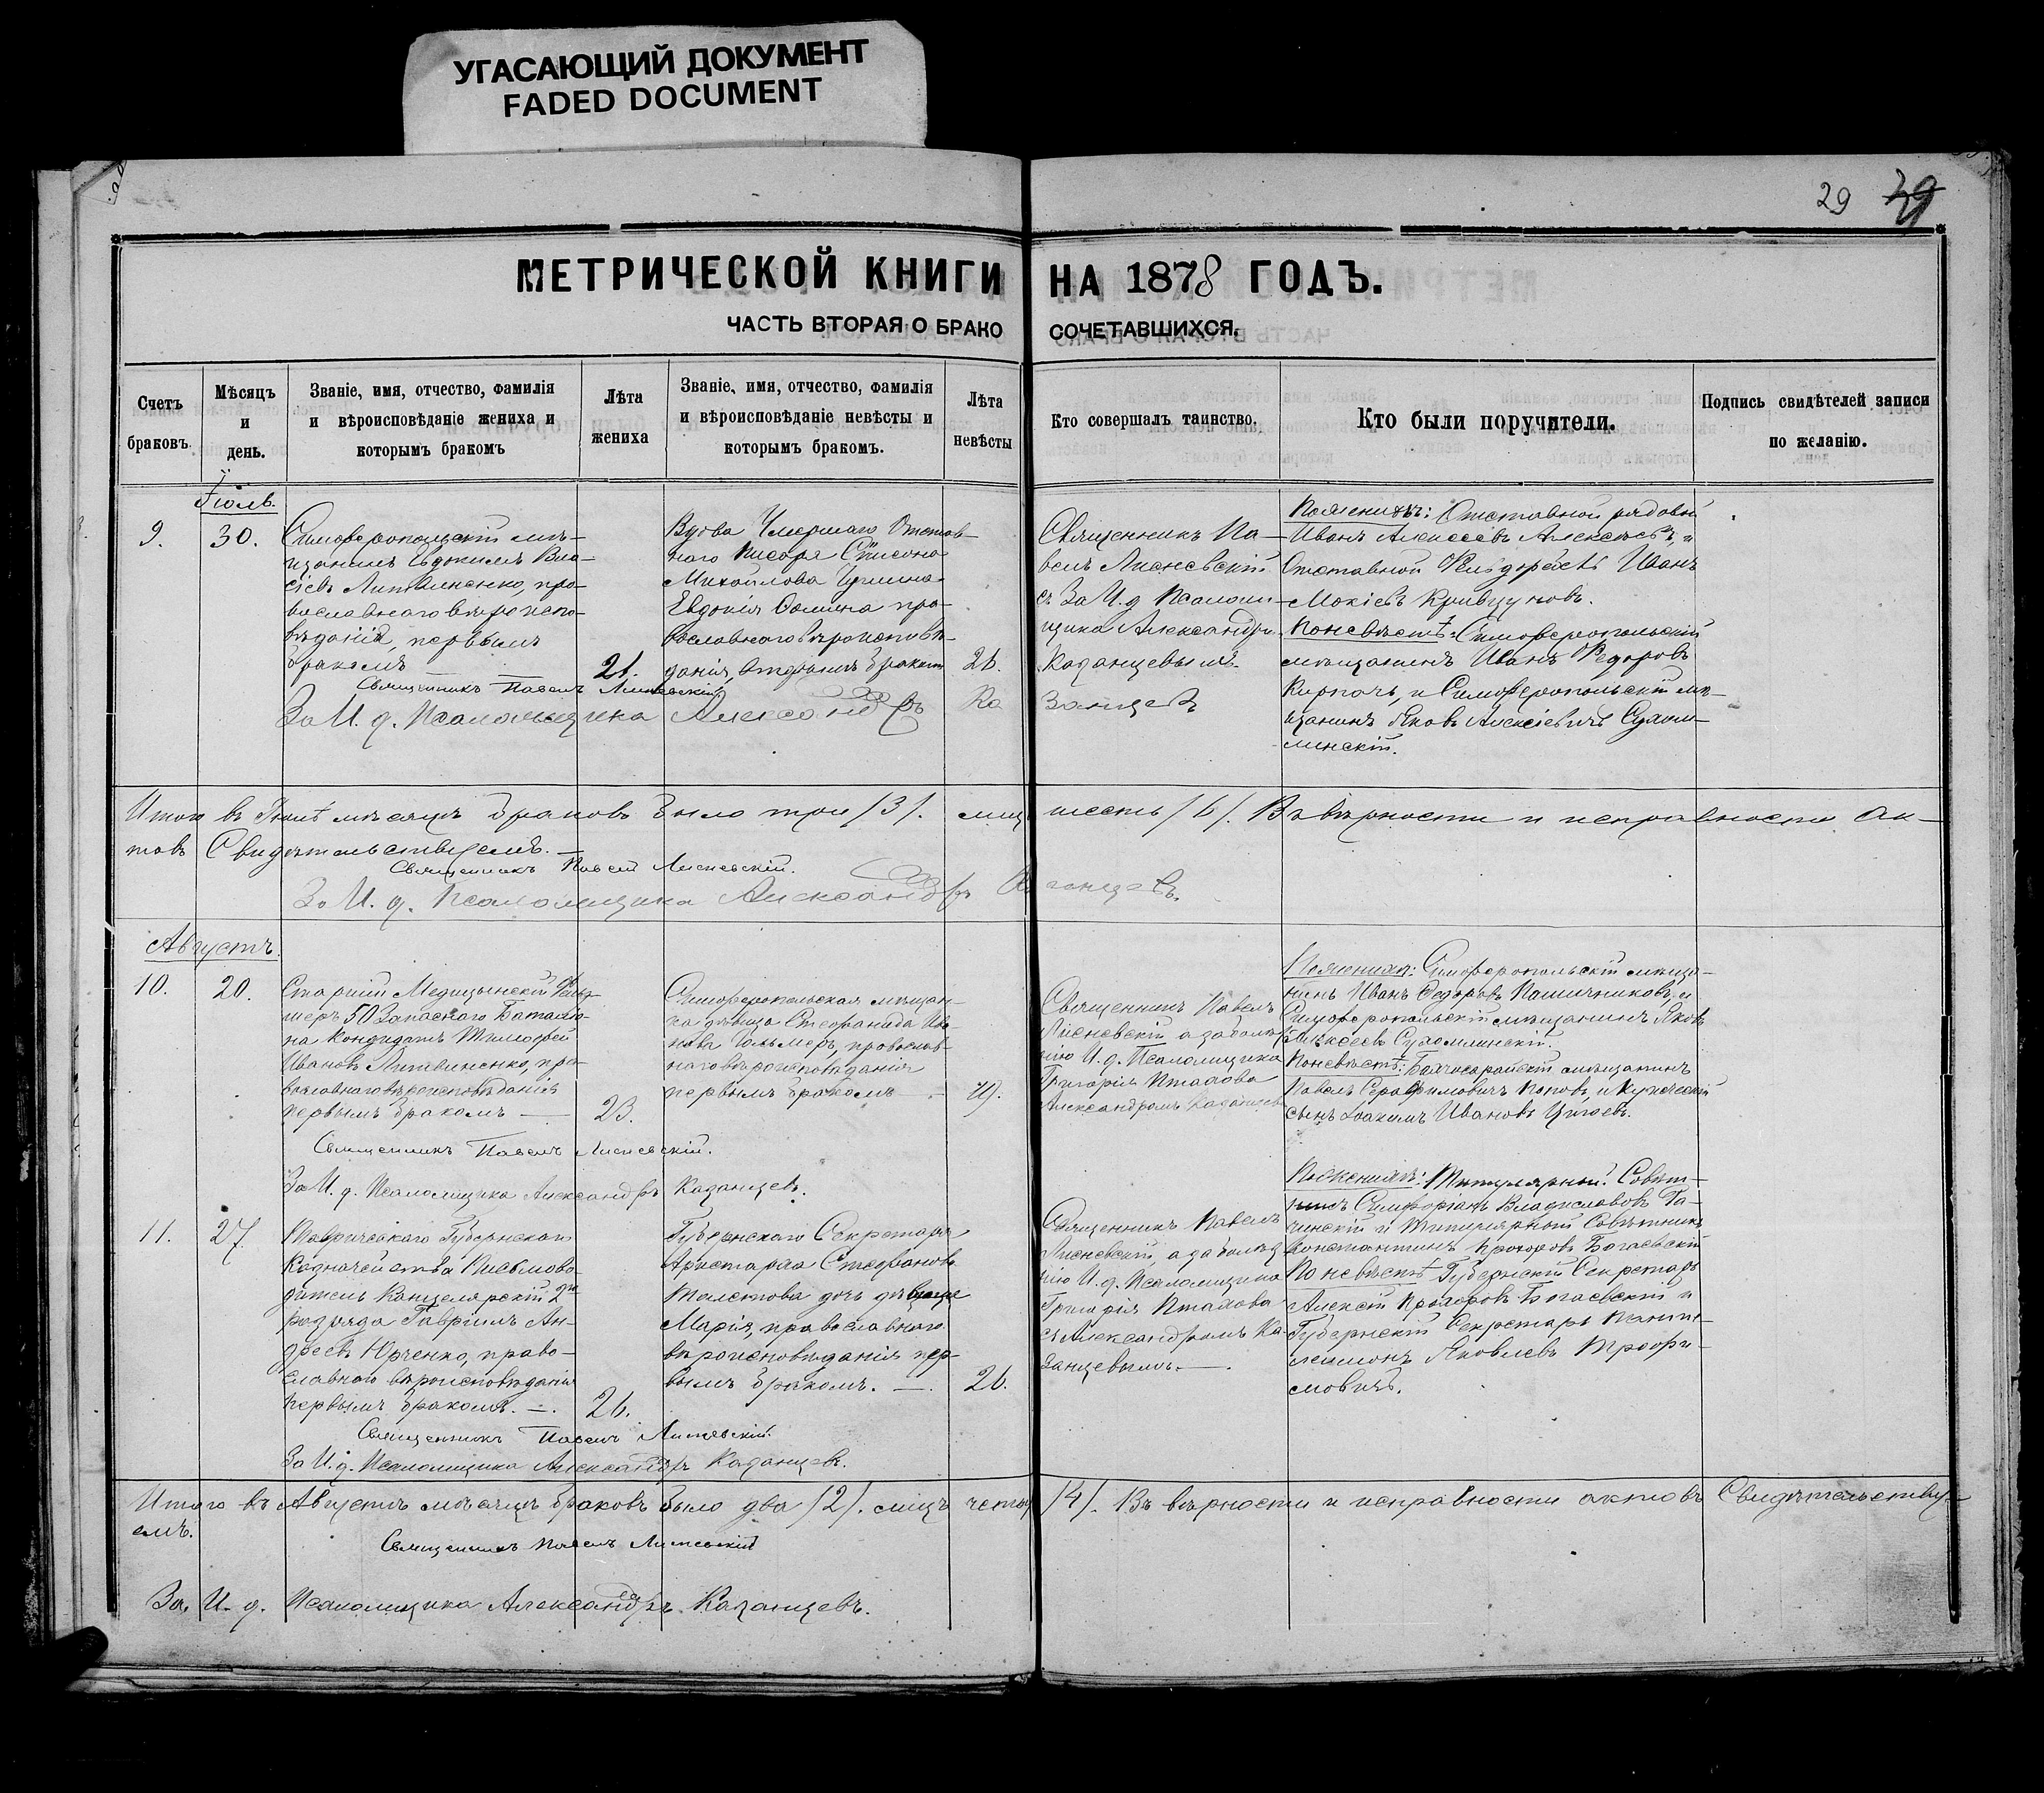 УГАСАЮЩИЙ ДОКУМЕНТ
FADED DOCUMENT
29
МЕТРИЧЕСКОЙ КНИГИ НА 1878 ГОДЪ.
ЧАСТЬ ВТОРАЯ О БРАКОСОЧЕТАВШИХСЯ.
Счетъ
браковъ.
Мѣсяцъ
и
день.
Званіе, имя, отчество, фамилія
и вѣроисповѣданіе жениха и
которымъ бракомъ
Лѣта
жениха
Званіе, имя, отчество, фамилія
и вѣроисповѣданіе невѣсты и
которымъ бракомъ.
Лѣта
невѣсты
Кто совершалъ таинство.
Кто были поручители.
Подпись свидѣтелей записи
по желанію.
Іюль.
9.
30.
Симферопольскій мѣ-
щанинъ Евдокимъ Вла-
сіевъ Литвиненко, пра-
вославнаго вѣроиспо-
вѣданія, первымъ
бракомъ
21.
Вдова Умершаго Отстав-
наго писаря
Михайлова
Евдокія Фомина пра-
вославнаго вѣроисповѣ-
данія, вторымъ бракомъ
26.
Священникъ Па-
велъ Лисневскій
съ За И. д Псалом-
щика Александр
Казанцевымъ.
По женихѣ: Отставной рядовой
Иванъ Алексѣевъ Алексѣевъ, и
Отставной Фельдфебель Иванъ
Мокіевъ Кривцуновъ.
По невѣстѣ: Симферопольскій
мѣщанинъ Иванъ Федоровъ
Карпачъ, и Симферопольскій мѣ-
щанинъ Яковъ Алексіевичъ Сухом-
линскій.
Священникъ Павелъ Лисневскій
За И. д. Псаломщика Александръ Казанцевъ
Итого въ Іюлѣ мѣсяцѣ браковъ было три /3/. лицъ шесть /6/. Въ вѣрности и исправности Ак-
товъ Свидѣтельствуемъ. —
Священникъ Павелъ Лисневскій.
За И. д. Псаломщика Александръ Казанцевъ.
Августъ.
10.
20.
Старшій Медицынскій Фельд-
шеръ 50 Запаснаго Баталіо-
на Кандидатъ Тимофей
Ивановъ Литвиненко, пра-
вославнаго вѣроисповѣданія
первымъ бракомъ —
23.
Симферопольская мѣщан-
ка дѣвица Стефанида Ива-
нова православ-
наго вѣроисповѣданія
первымъ бракомъ —
19.
Священникъ Павелъ
Лисневскій а за болѣз-
нію И. д. Псаломщика
Григорія Птахова
Александромъ Казанцев
По женихѣ: Симферопольскій мѣща-
нинъ Иванъ Федоровъ Пашечниковъ, и
Симферопольскій мѣщанинъ Яковъ
Алексѣевъ Сухомлинскій.
По невѣстѣ: Бахчисарайскій мѣщанинъ
Павелъ Серафимовичъ Поповъ, и Купеческій
сынъ Іоакимъ Ивановъ
Священникъ Павелъ Лисневскій.
За И. д. Псаломщика Александръ Казанцевъ.
11.
27.
Таврическаго Губернскаго
Казначейства Письмово-
дитель Канцелярскій 2го
разряда Гавріилъ Ан-
дреевъ Юрченко, право-
славнаго вѣроисповѣданія
первымъ бракомъ. —.
26.
Губернскаго Секретаря
Аристарха Стефанова
дочь дѣвица
Марія, православнаго
вѣроисповѣданія пер-
вымъ бракомъ. —.
26.
Священникъ Павелъ
Лисневскій, а за болѣз-
нію И. д. Псаломщика
Григорія Птахова
съ Александромъ Ка-
занцевымъ. —.
По женихѣ: Титулярный Совѣт-
никъ Симфоріанъ Владиславовъ Га-
чинскій и Титулярный Совѣтникъ
Константинъ Прохоровъ Богаевскій
По невѣстѣ Губернскій Секретарь
Алексій Прохоровъ Богаевскій и
Губернскій Секретарь Пантe-
леимонъ Яковлевъ Трофи-
мовичъ.
Священникъ Павелъ Лисневскій.
За И. д. Псаломщика Александръ Казанцевъ.
Итого въ Августѣ мѣсяцѣ браковъ было два /2/. лицъ четыр /4/. Въ вѣрности и исправности актовъ Свидѣтельству-
емъ.
Священникъ Павелъ Лисневскій
За И. д. Псаломщика Александръ Казанцевъ.